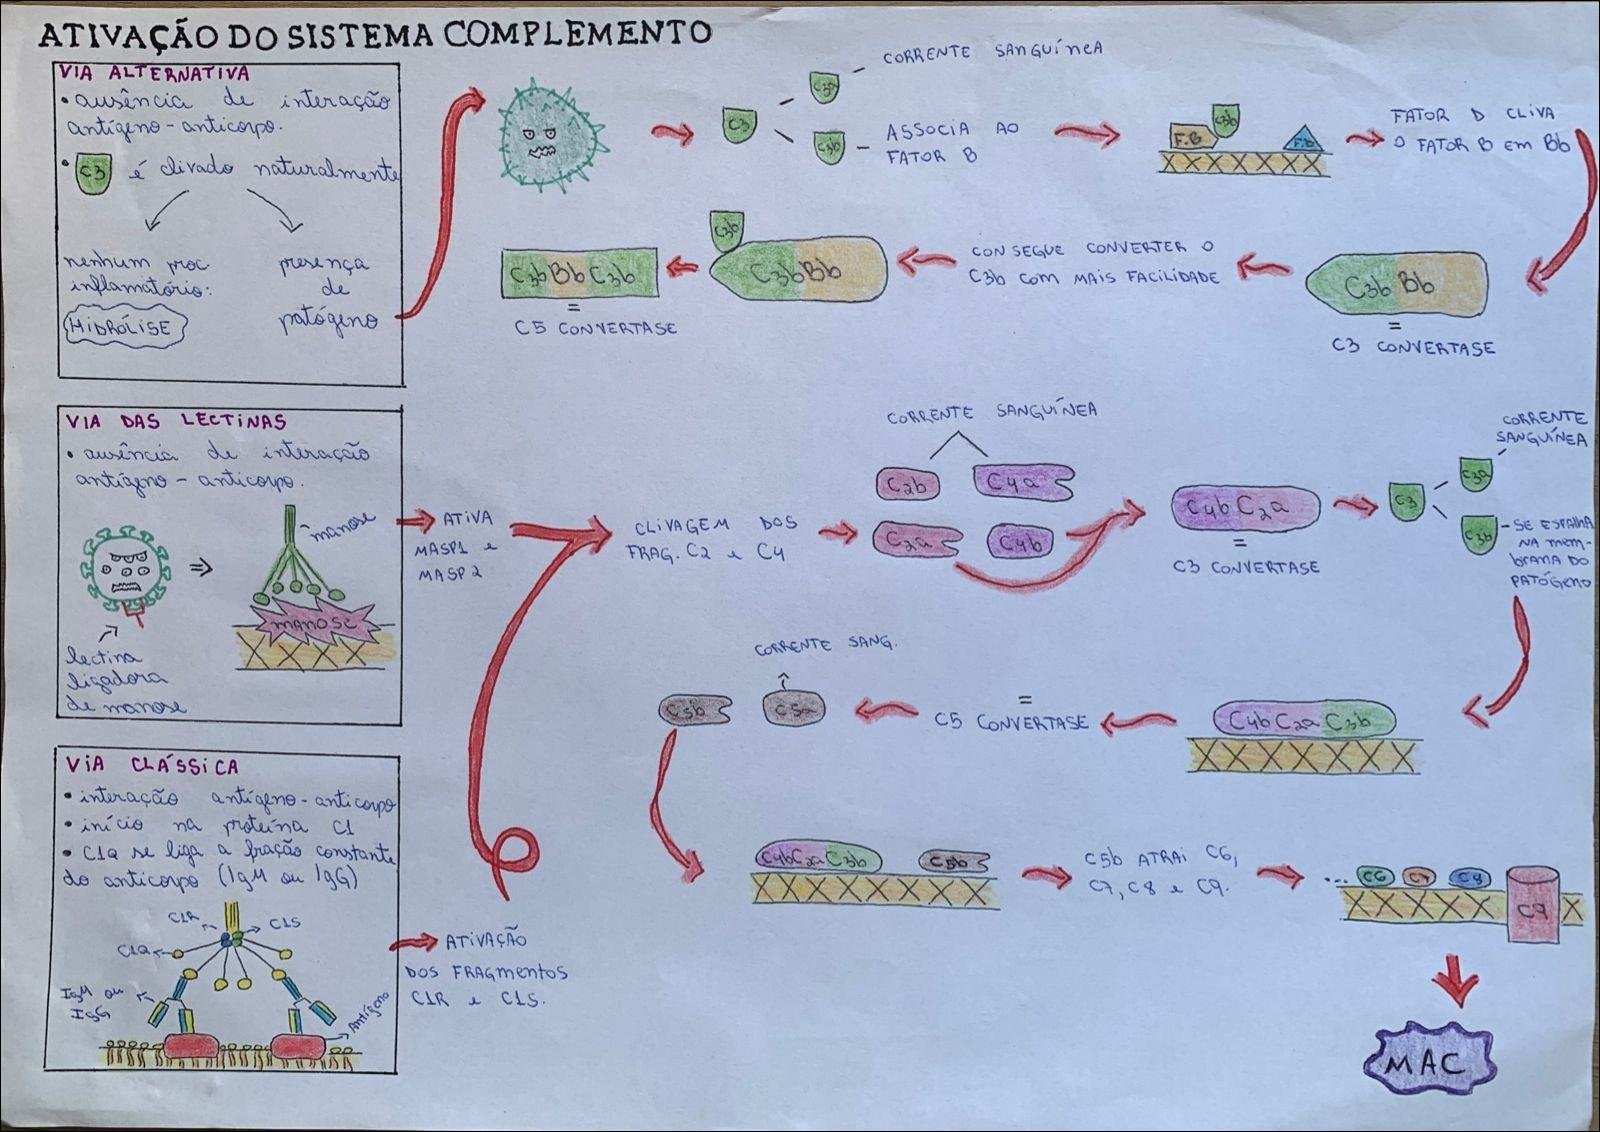 ATIVAÇÃO DO SISTEMA COMPLEMENTO
VIA ALTERNATIVA
• ausência de interação
antígeno-anticorpo.
• C3 é clivado naturalmente
nenhum proc.
inflamatório:
HIDRÓLISE
presença
de
patógeno
C3
C3a
CORRENTE SANGUÍNEA
C3b
ASSOCIA AO
FATOR B
F.B
C3b
F.D
FATOR D CLIVA
O FATOR B EM Bb
C3b Bb
=
C3 CONVERTASE
CONSEGUE CONVERTER O
C3b COM MAIS FACILIDADE
C3b
C3bBb
C3b Bb C3b
=
C5 CONVERTASE
VIA DAS LECTINAS
• ausência de interação
antígeno-anticorpo.
manose
MANOSE
lectina
ligadora
de manose
ATIVA
MASP1 e
MASP2
CLIVAGEM DOS
FRAG. C2 e C4
CORRENTE SANGUÍNEA
C2b
C4a
C2a
C4b
C4b C2a
=
C3 CONVERTASE
C3
C3a
CORRENTE
SANGUÍNEA
C3b
-SE ESPALHA
NA MEM-
BRANA DO
PATÓGENO
C4b C2a C3b
=
C5 CONVERTASE
CORRENTE SANG.
C5b
C5a
C4bC2aC3b
C5b
C5b ATRAI C6,
C7, C8 e C9.
...
C6
C7
C8
C9
MAC
VIA CLÁSSICA
• interação antígeno-anticorpo
• início na proteína C1
• C1Q se liga a fração constante
do anticorpo (IgM ou IgG)
C1R
C1S
C1Q
IgM ou
IgG
Antígeno
ATIVAÇÃO
DOS FRAGMENTOS
C1R e C1S.